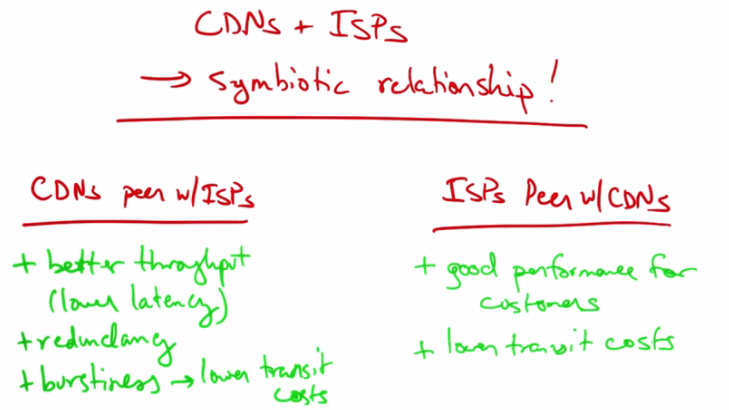 CDNs + ISPs
→ symbiotic relationship!
CDNs peer w/ISPs
+ better throughput
(lower latency)
+ redundancy
+ burstiness → lower transit
costs
ISPs Peer w/CDNs
+ good performance for
customers
+ lower transit costs